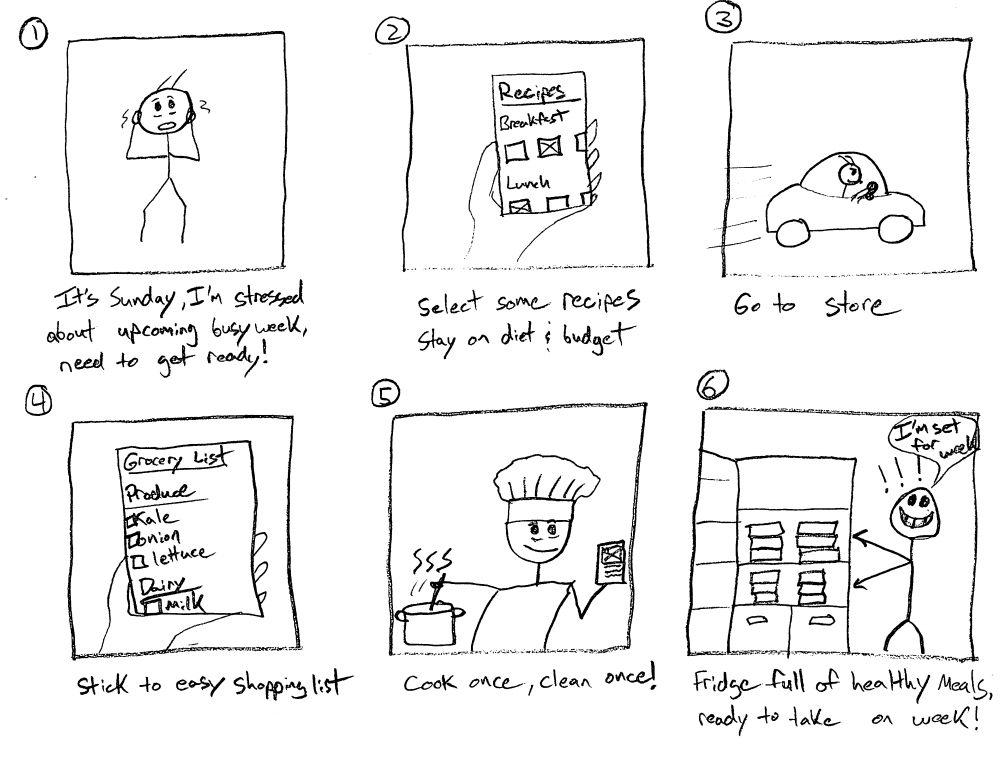 1
It's Sunday, I'm stressed
about upcoming busy week,
need to get ready!
2
Recipes
Breakfast
Lunch
Select some recipes
stay on diet & budget
3
Go to store
4
Grocery List
Produce
Kale
onion
lettuce
Dairy
Milk
Stick to easy shopping list
5
SSS
Cook once, clean once!
6
I'm set
for week
!!!
Fridge full of healthy Meals,
ready to take on week!